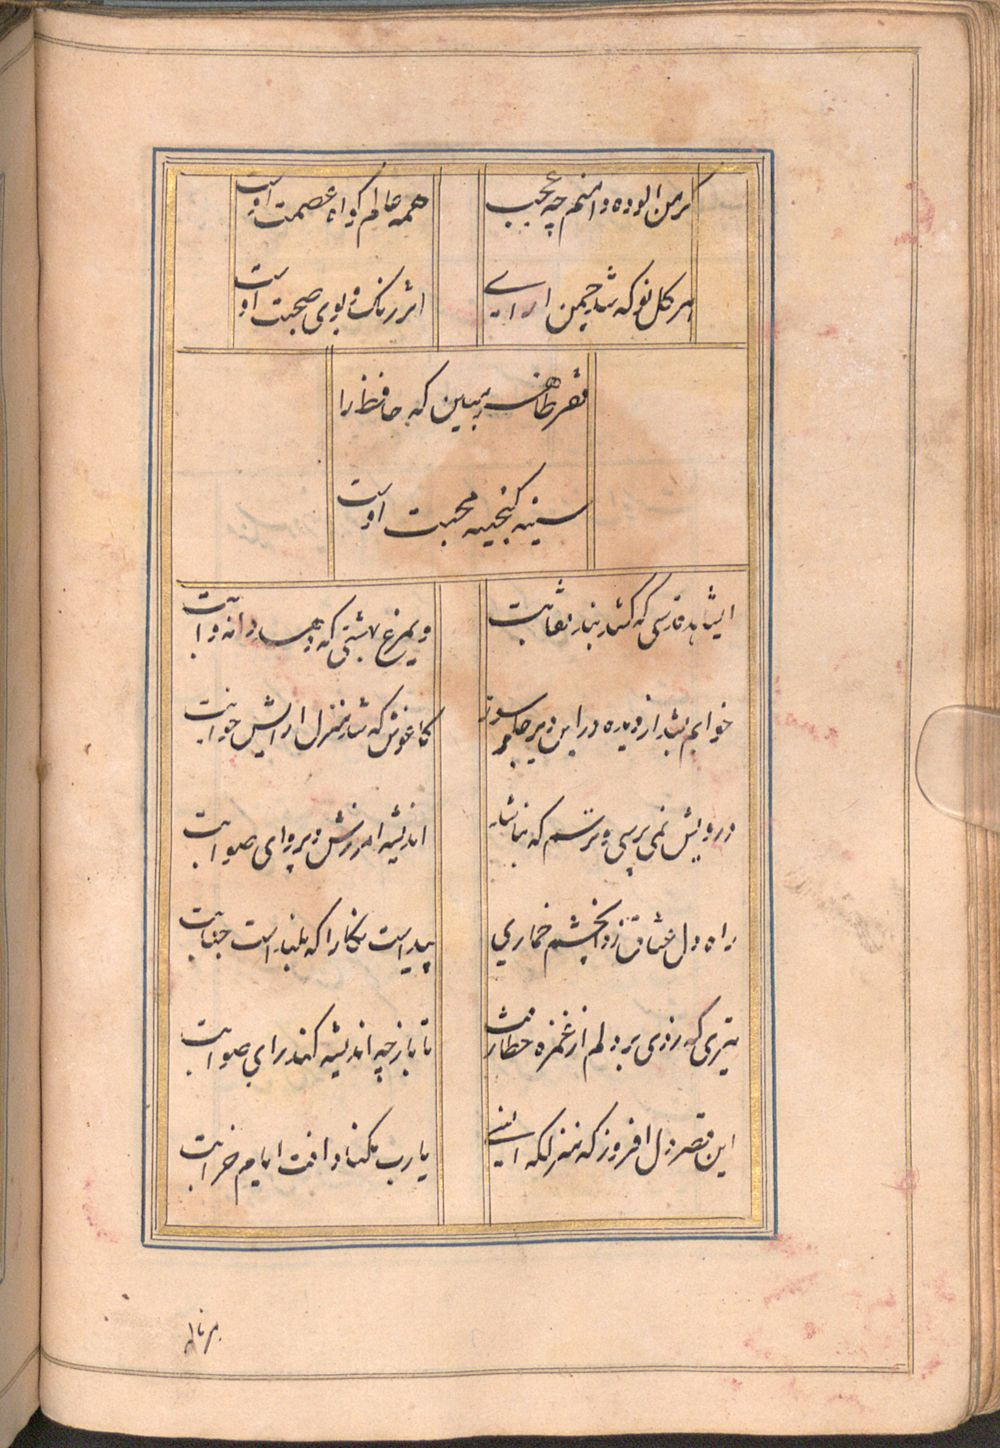 گر من الوده دامنم چه عجب
همه عالم گواه عصمت اوست
هر گل نو که شد چمن ارای
اثر رنک و بوی صحبت اوست
فقر ظاهر مبین که حافظ را
سینه گنجینه محبت اوست
ای شاهد قدسی که کشد بند نقابت
وی مرغ بهشتی که دهد دانه و ابت
خوابم بشد از دیده در این دیر جگر سوز
کاغوش که شد منزل ارایش خوابت
درویش نمی پرسی و ترسم که نباشد
اندیشه امرزش و پروای صوابت
راه دل عشاق زد ان چشم خماری
پیداست نگارا که بلند است جنابت
تیری که زدی بر دلم از غمزه خطا رفت
تا باز چه اندیشه کند رای صوابت
این قصر دل افروز که منزلکه انسی
یا رب مکناد افت ایام خرابت
هر ناله